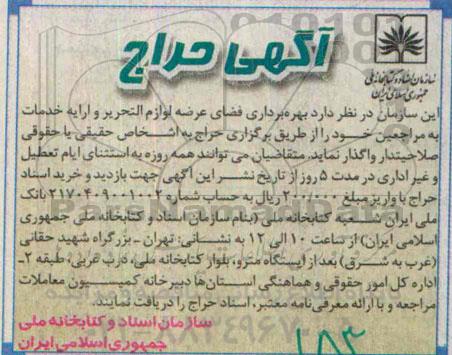 آگهی حراج
سازمان اسناد و کتابخانه ملی
جمهوری اسلامی ایران
این سازمان در نظر دارد بهره‌برداری فضای عرضه لوازم التحریر و ارایه خدمات
به مراجعین خود را از طریق برگزاری حراج به اشخاص حقیقی یا حقوقی
صلاحیتدار واگذار نماید. متقاضیان می توانند همه روزه به استثنای ایام تعطیل
و غیر اداری در مدت ۵ روز از تاریخ نشر این آگهی جهت بازدید و خرید اسناد
حراج با واریز مبلغ ۲۰۰۰۰۰ ریال به حساب شماره ۲۱۷۰۴۰۹۰۰۱۰۰۲ بانک
ملی ایران شعبه کتابخانه ملی (بنام سازمان اسناد و کتابخانه ملی جمهوری
اسلامی ایران) از ساعت ۱۰ الی ۱۲ به نشانی: تهران - بزرگراه شهید حقانی
(غرب به شرق) بعد از ایستگاه مترو، بلوار کتابخانه ملی، درب غربی، طبقه ۲-
اداره کل امور حقوقی و هماهنگی استان‌ها دبیرخانه کمیسیون معاملات
مراجعه و با ارائه معرفی‌نامه معتبر، اسناد حراج را دریافت نمایند.
سازمان اسناد و کتابخانه ملی
جمهوری اسلامی ایران
۱۸۳